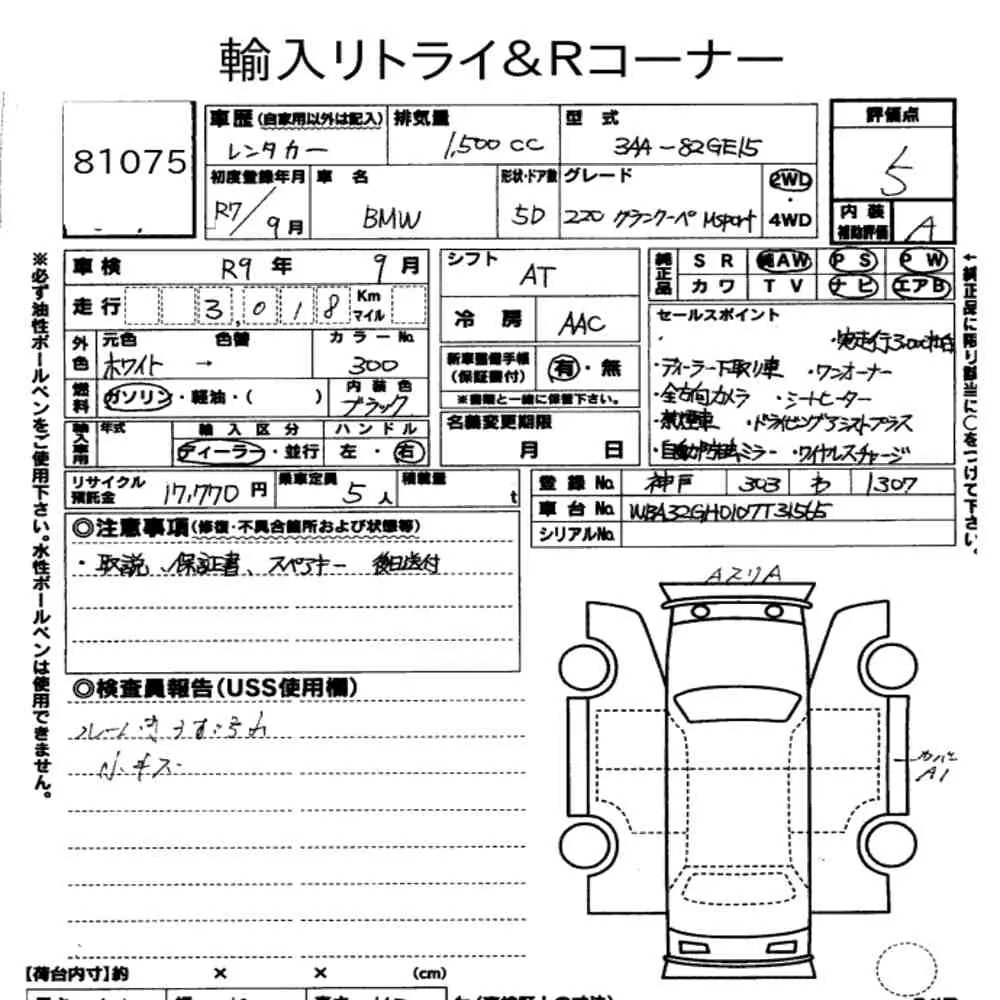 輸入リトライ&Rコーナー
81075
車歴(自家用以外は記入) レンタカー
排気量 1,500 cc
型式 3AA-82GE15
評価点 5
初度登録年月 R7/9月
車名 BMW
形状・ドア数 5D
グレード 220 グランクーペ Msport
2WD・4WD
内装補助評価 A
車検 R9年 9月
シフト AT
純正品 SR 純AW PS PW
カワ TV ナビ エアB
走行 3,018 Km マイル
冷房 AAC
セールスポイント
外色 元色 ホワイト → 色替 カラーNo. 300
・ディーラー下取り車 ・ワンオーナー
新車整備手帳(保証書付) 有・無
※書類と一緒に保管下さい。
・全方向カメラ ・シートヒーター
燃料 ガソリン・軽油・( ) 内装色 ブラック
・禁煙車 ・ドライビングアシストプラス
名義変更期限 月 日
輸入車用 年式 輸入区分 ディーラー・並行 ハンドル 左・右
・自動防眩ミラー ・ワイヤレスチャージ
リサイクル預託金 17,770円
乗車定員 5人
積載量 t
登録No. 神戸 303 わ 1307
車台No. WBA32GH0107T31565
シリアルNo.
◎注意事項(修復・不具合箇所および状態等)
・取説、保証書、スペアキー 後日送付
◎検査員報告(USS使用欄)
A
A1
【荷台内寸】約 × × (cm)
※必ず油性ボールペンをご使用下さい。水性ボールペンは使用できません。
↑純正品に限り該当に○をつけて下さい。